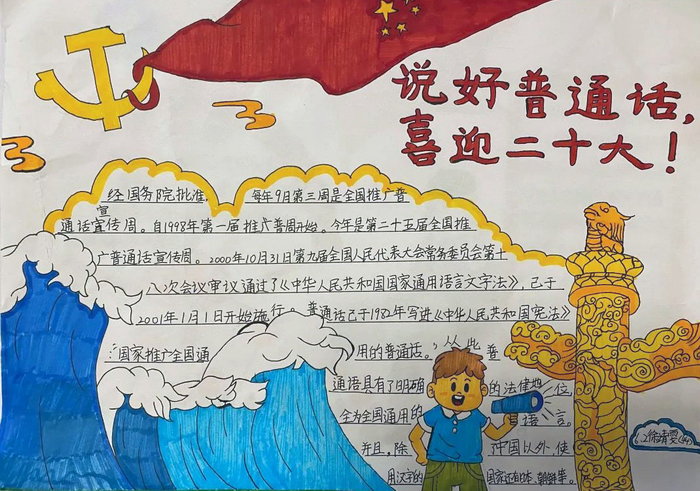 说好普通话，
喜迎二十大！
经国务院批准，每年9月第三周是全国推广普
通话宣传周。自1998年第一届推广普周开始。今年是第二十五届全国推
广普通话宣传周。2000年10月31日第九届全国人民代表大会常务委员会第十
八次会议审议通过了《中华人民共和国国家通用语言文字法》，已于
2001年1月1日开始施行。普通话已于1982年写进《中华人民共和国宪法》
："国家推广全国通用的普通话。"从此普
通语具有了明确的法律地位
全为全国通用的语言。
并且，除中国以外使
用汉字的国家还有日本、朝鲜等。
徐靖雯